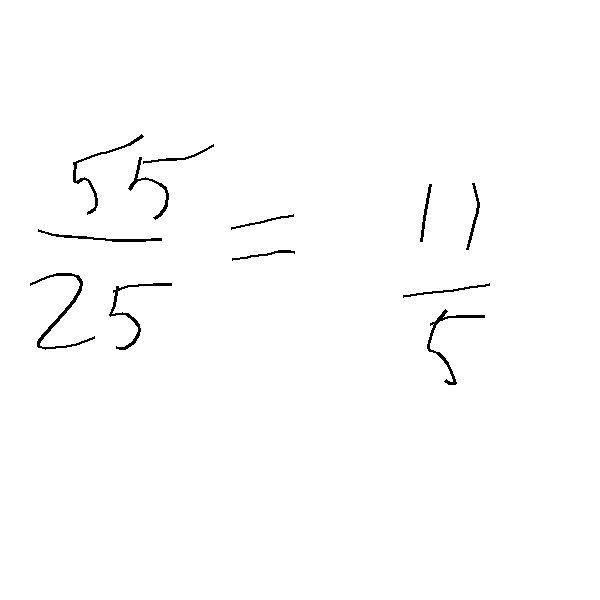 55/25 = 11/5